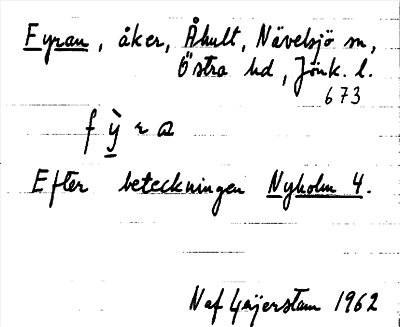 Fyran, åker, Åhult, Nävelsjö sn,
Östra hd, Jönk. l.
673
f ỳ r a
Efter beteckningen Nyholm 4.
Naf Geijerstam 1962